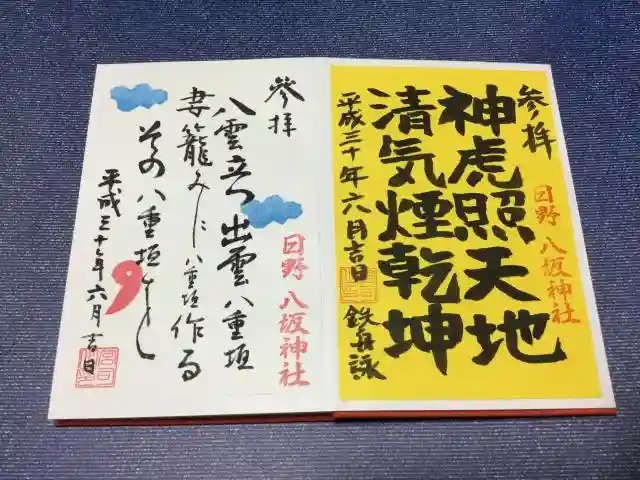 参拝
神虎照天地
日野 八坂神社
清気煙乾坤
平成三十年六月吉日
鉄舟詠
參拝
八雲立つ出雲八重垣
日野 八坂神社
妻籠みに八重垣作る
その八重垣を
平成三十年六月吉日